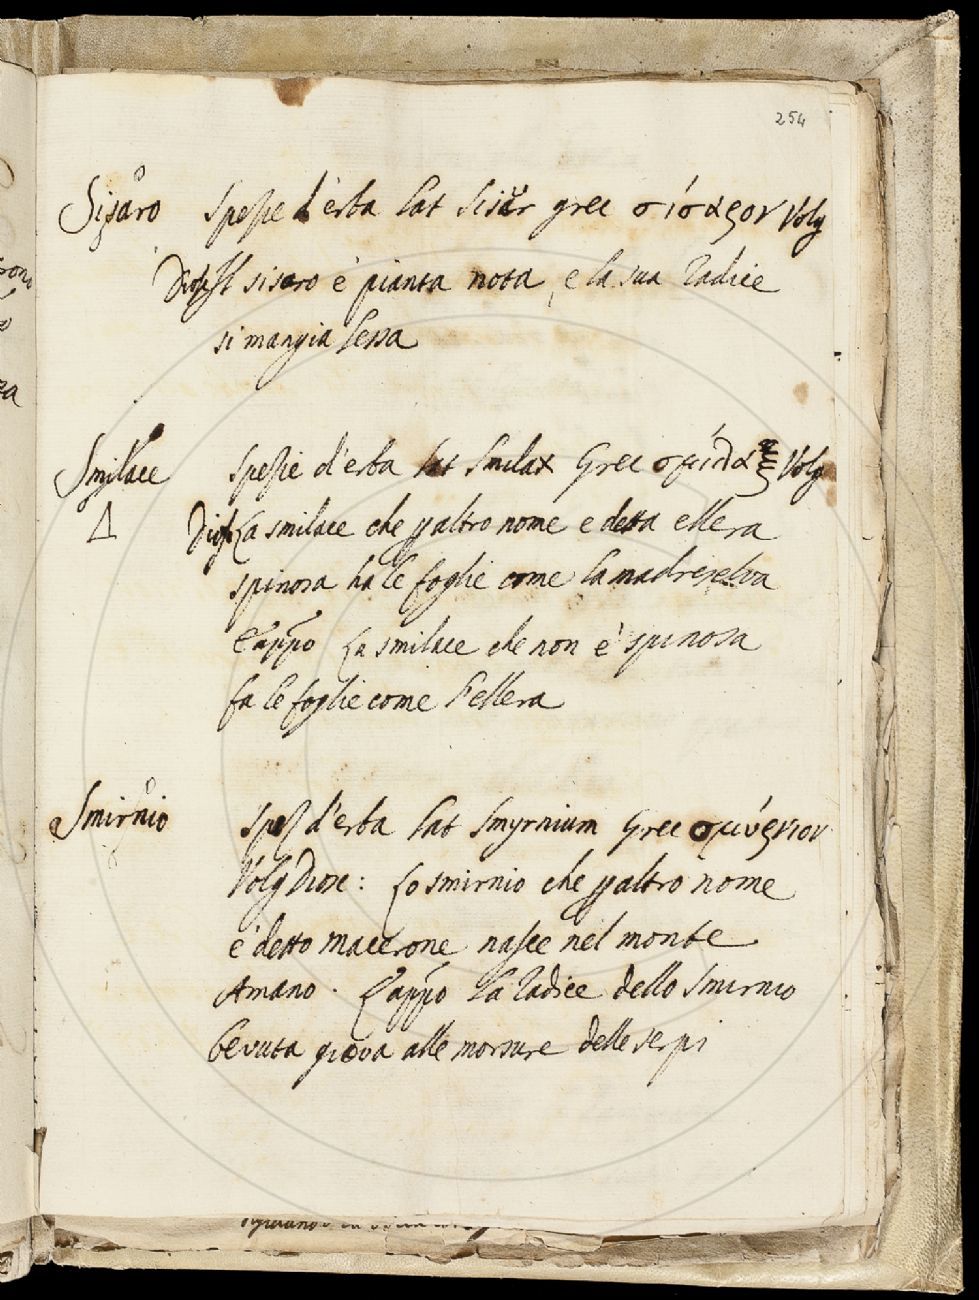 254
Sisaro Spezie d'erba Lat Sisar grec σίσαρον Volg
Diosc Il sisaro è pianta nota, e la sua radice
si mangia lessa
Smilace Spezie d'erba Lat Smilax Grec σμίλαξ Volg
Diosc La smilace che p altro nome e detta ellera
spinosa ha le foglie come la madreselva
E appo La smilace che non è spinosa
fa le foglie come l'ellera
Smirnio Spez d'erba Lat Smyrnium Grec σμύρνιον
Volg Diosc: Lo smirnio che p altro nome
è detto macerone nasce nel monte
Amano. E appo La radice dello Smirnio
bevuta giova alle morsure delle serpi